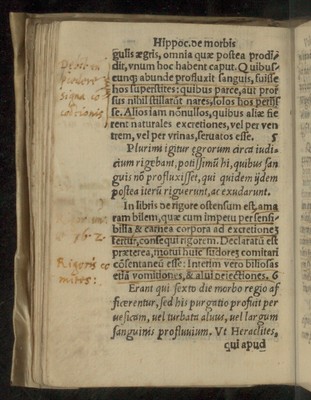 Hippoc. de morbis
gulis ægris, omnia quæ postea prodi-
dit, vnum hoc habent caput. Quibus-
eunq; abunde profluxit sanguis, fuisse
hos superstites: quibus parce, aut pror
sus nihil stillarūt nares, solos hos perijs
se. Alios iam nōnullos, quibus aliæ fie
rent naturales excretiones, vel per ven
trem, vel per vrinas, seruatos esse. 5
Plurimi igitur ægrorum circa iudi-
cium rigebant, potissimū hi, quibus san
guis nō profluxisset, qui quidem ijdem
postea iterū riguerunt, ac exudarunt.
In libris de rigore ostensum est, ama
ram bilem, quæ cum impetu per sensi-
bilia & carnea corpora ad excretionē
fertur, consequi rigorem. Declaratū est
præterea, motui huic sudores comitari
cōsentaneū esse: Interim vero biliosas
etiā vomitiones, & alui deiectiones. 6
Erant qui sexto die morbo regio af
ficerentur, sed his purgatio profuit per
uesicam, vel turbata aluus, vel largum
sanguinis profluuium. Vt Heraclites,
qui apud
signa
Rigoris co
mites: